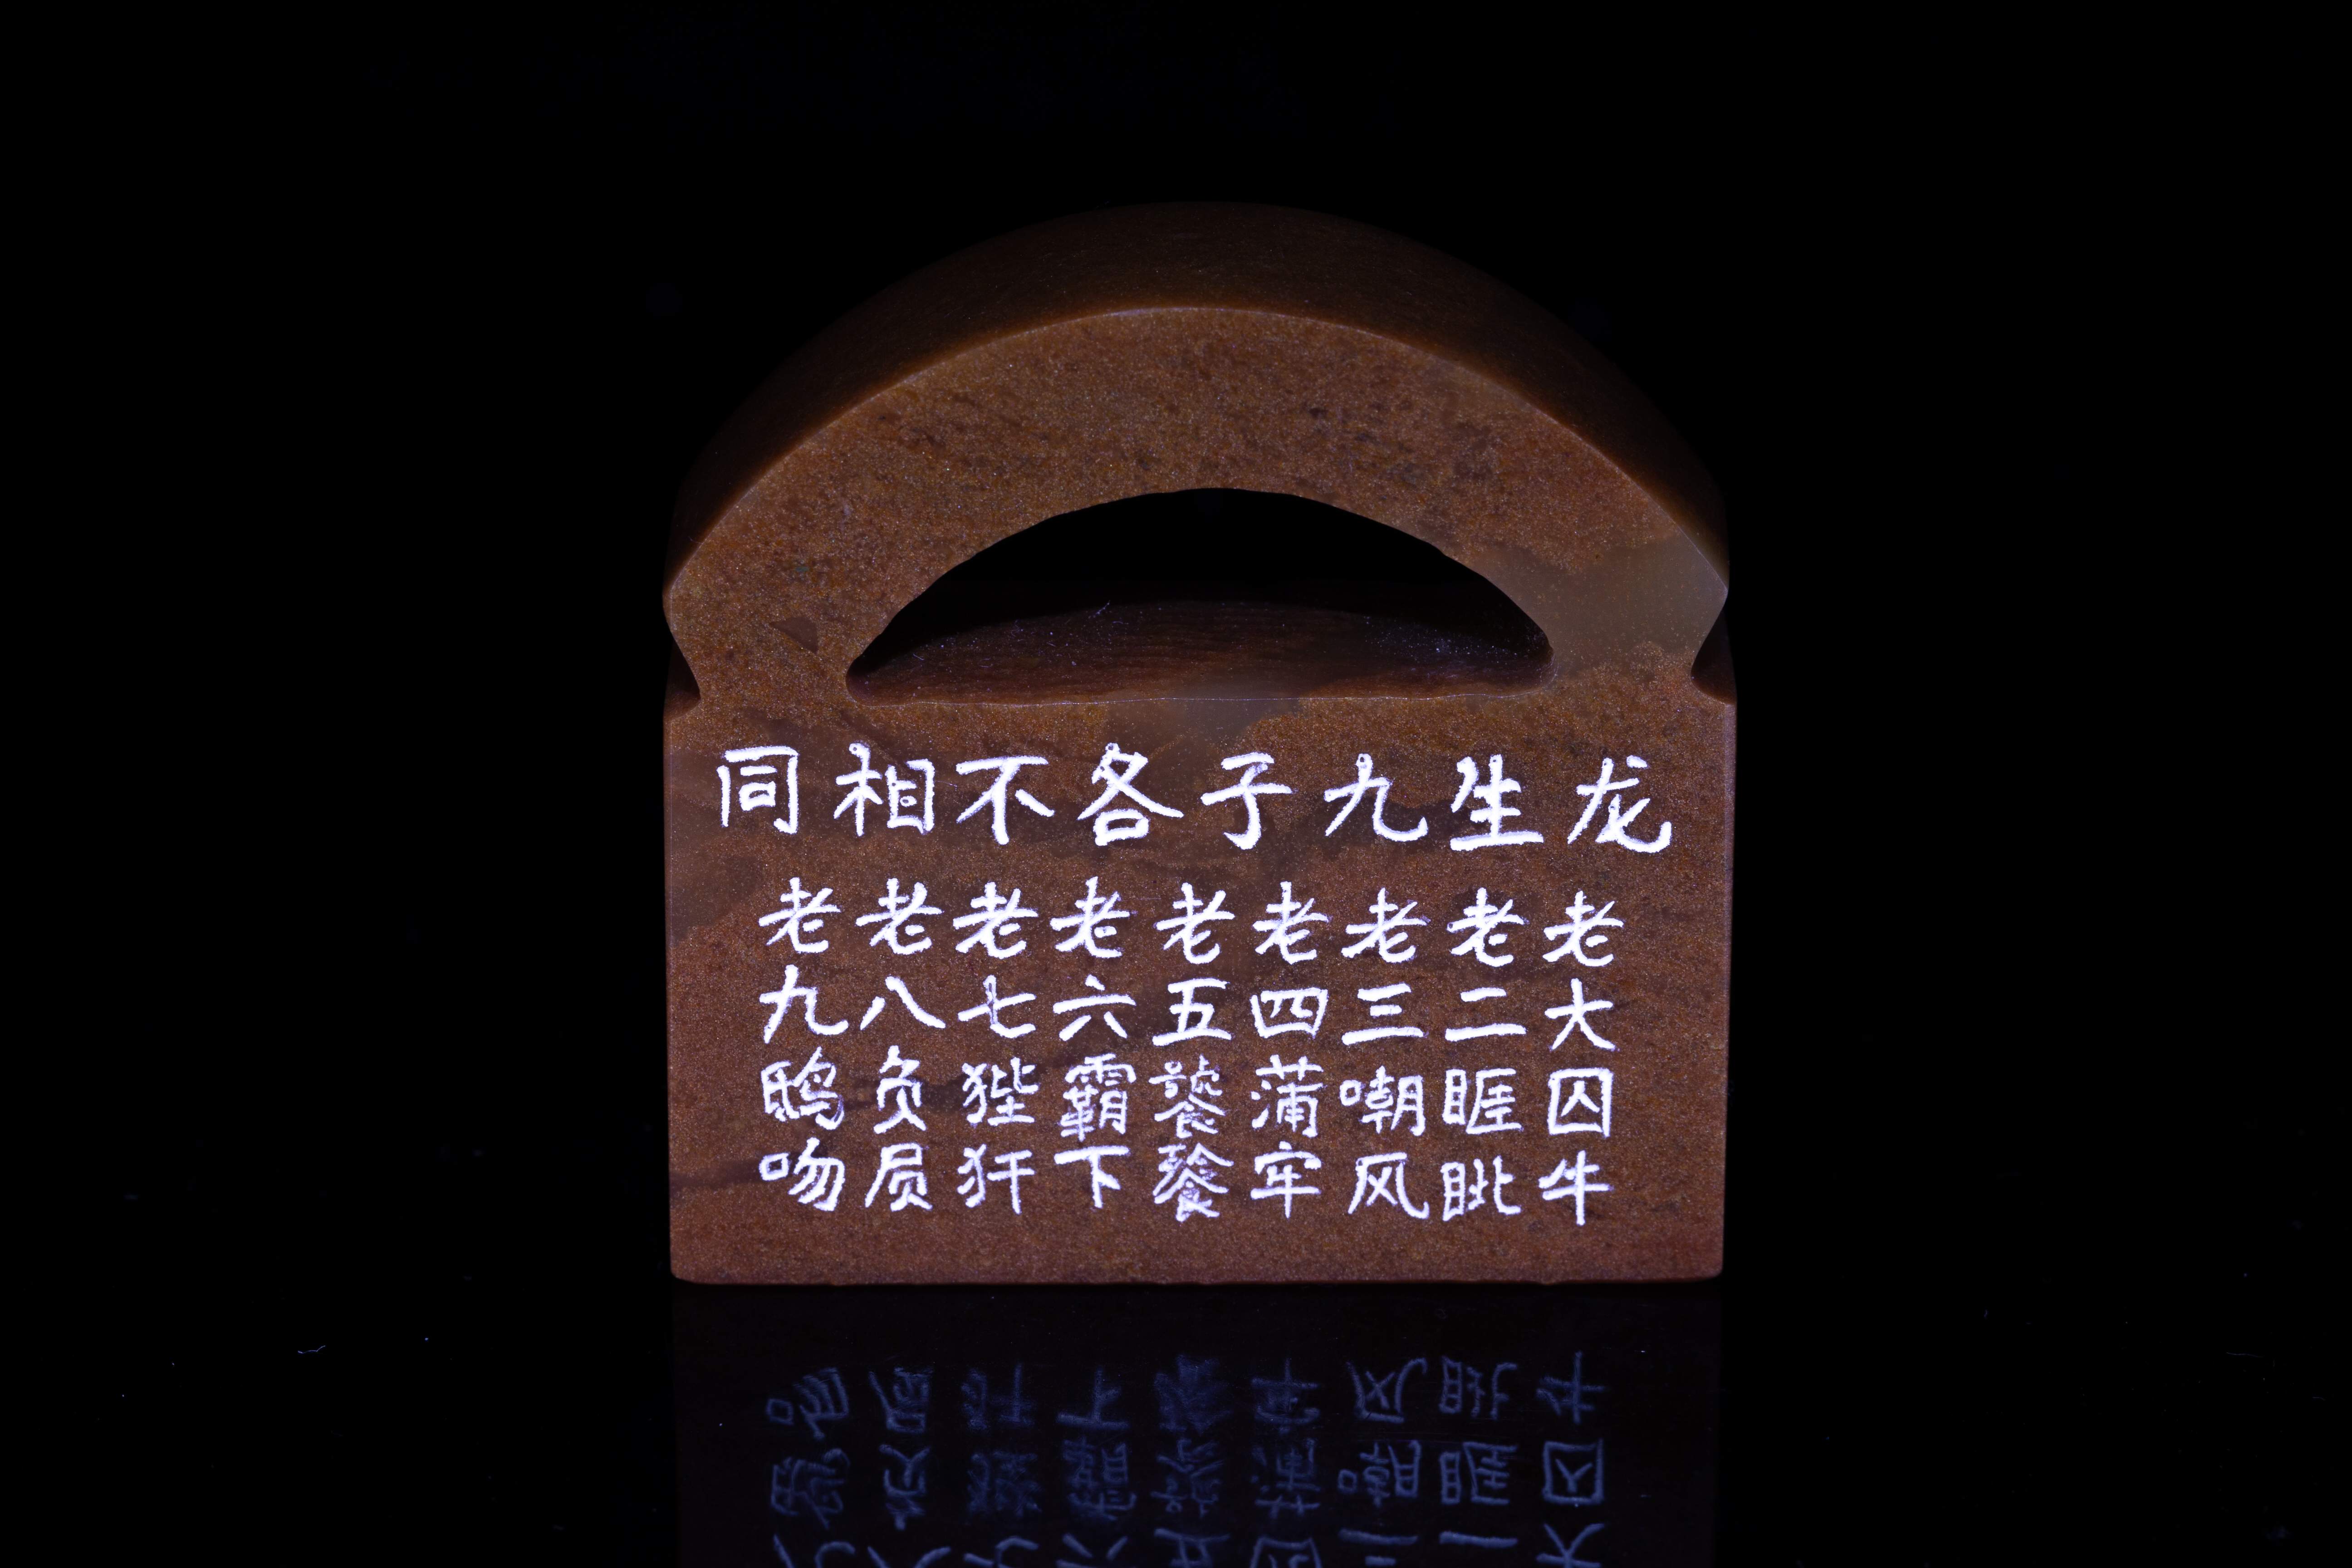 龙生九子各不相同
老大囚牛
老二睚眦
老三嘲风
老四蒲牢
老五饕餮
老六霸下
老七狴犴
老八负屃
老九鸱吻